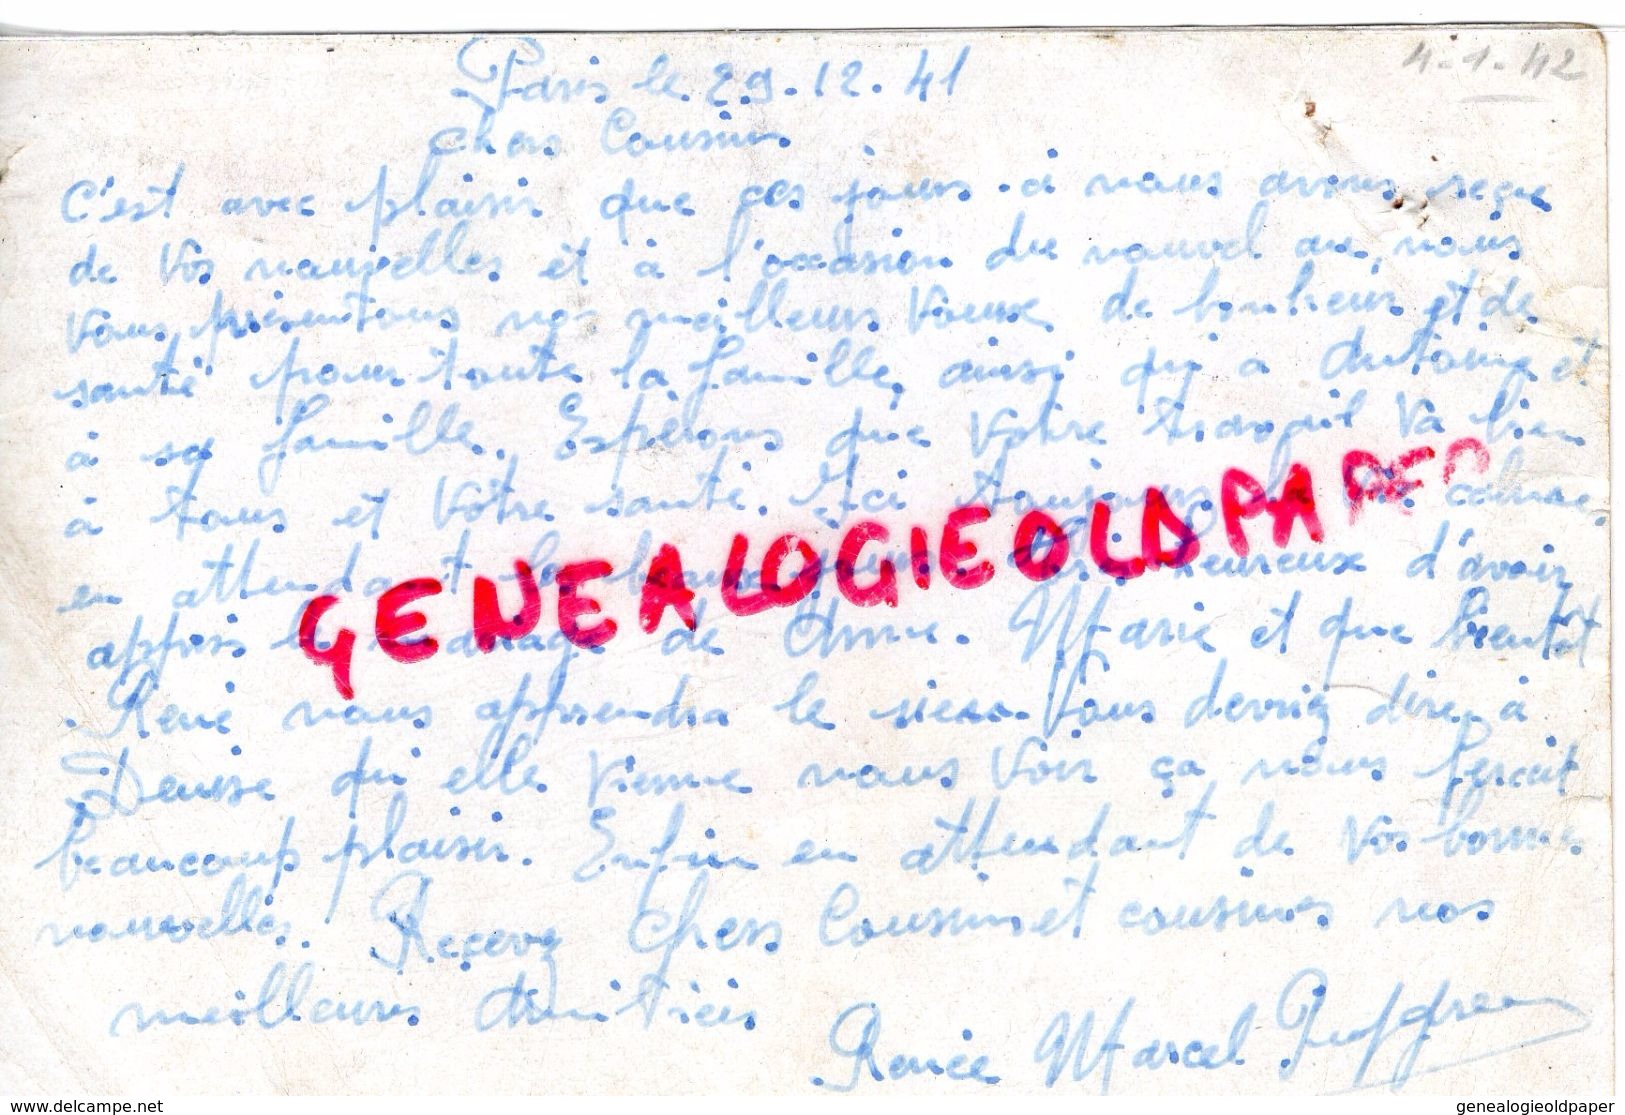 4-1-42
Paris le 29.12.41
Chers Cousins
C'est avec plaisir que ces jours-ci nous avons reçu
de vos nouvelles et à l'occasion du nouvel an, nous
vous présentons nos meilleurs Voeux de bonheur et de
santé pour toute la famille, ainsi qu'a Antoine et
à sa famille. Espérons que Votre travail va bien
à tous et votre santé. Ici toujours calme
en attendant les beaux jours heureux d'avoir
appris le mariage de Anne. Marie et que bientôt
René nous apprendra le sien. Vous devriez dire à
Denise qu'elle vienne nous voir ça nous ferait
beaucoup plaisir. Enfin en attendant de vos bonnes
nouvelles. Recevez Chers Cousins et cousines nos
meilleures Amitiés
Renée Marcel
GENEALOGIEOLDPAPER
www.delcampe.net
genealogieoldpaper